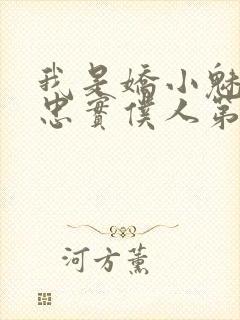 我是嬌小魅
忠實僕人第
河方薰